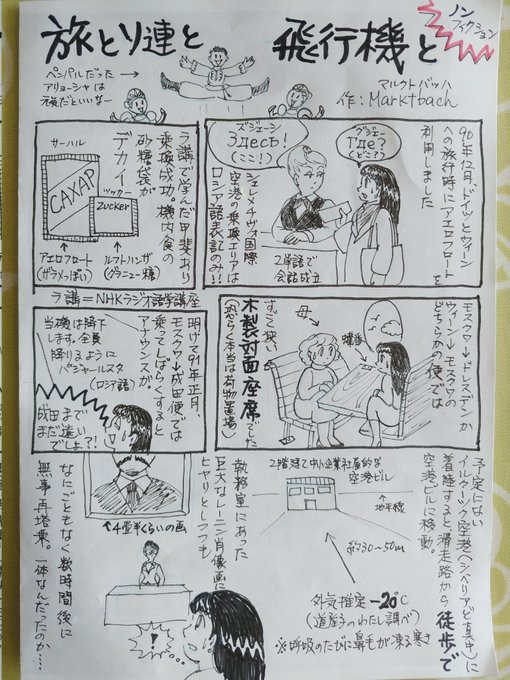 旅とソ連と飛行機と
ノン
フィクション
マルクトバッハ
作:Marktbach
ペンパルだった
アリョーシャは
元気だといいな〜
90年12月、ドイツとウィーン
への旅行時にアエロフロートを
利用しました
グジェー
Где?
(どこ?)
ズジェーシ
Здесь!
(ここ!)
2単語で
会話成立
シェレメチヴォ国際
空港の乗換エリアは
ロシア語表記のみ!!
ラ講で学んだ甲斐あり
乗換成功。機内食の
砂糖袋が
デカイ
サーハル
САХАР
ツッカー
zucker
アエロフロート
(ザラメっぽい)
ルフトハンザ
(グラニュー糖)
ラ講=NHKラジオ語学講座
モスクワ→ドレスデンか
ウィーン→モスクワの
どちらかの便では
蝶番
母
すごく狭い
木製対面座席でした
(恐らく本当は荷物置場)
明けて91年正月、
モスクワ→成田便では
乗ってしばらくすると
アナウンスが
当機は降下
します。全員
降りるように
パジャールスタ
(ロシア語)
成田まで
まだ遠い
でしょ?!
予定にない
イルクーツク空港(シベリアど真中)に
着陸すると、滑走路から徒歩で
空港ビルに移動。
2階建て中小企業社屋的な
空港ビル
地平線
約30〜50m
外気推定-20℃
(道産子のわたし調べ)
※呼吸のたびに鼻毛が凍る寒さ
執務室にあった
巨大なレーニン肖像画に
ヒヤリとしつつも
↑4畳半くらいの画
なにごともなく数時間後に
無事再搭乗。一体なんだったのか…